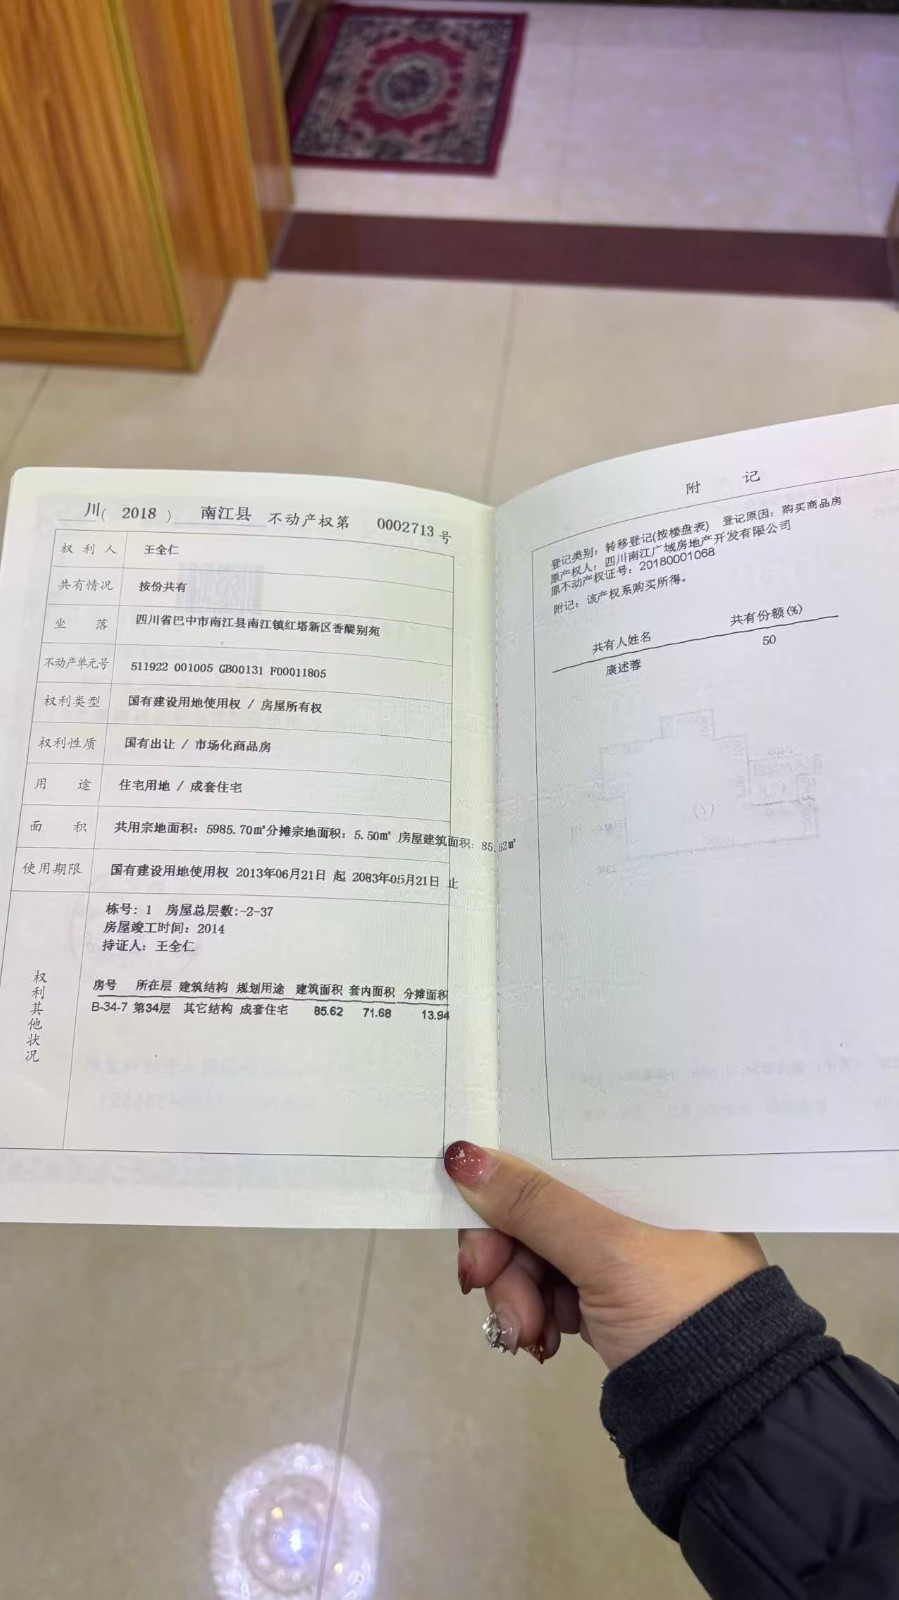 川( 2018 ) 南江县 不动产权第 0002713 号
权利人 王全仁
共有情况 按份共有
坐落 四川省巴中市南江县南江镇红塔新区香醍别苑
不动产单元号 511922 001005 GB00131 F00011805
权利类型 国有建设用地使用权 / 房屋所有权
权利性质 国有出让 / 市场化商品房
用途 住宅用地 / 成套住宅
面积 共用宗地面积: 5985.70㎡分摊宗地面积: 5.50㎡ 房屋建筑面积: 85.62㎡
使用期限 国有建设用地使用权 2013年06月21日 起 2083年05月21日 止
权利其他状况
栋号: 1 房屋总层数:-2-37
房屋竣工时间: 2014
持证人: 王全仁
房号 所在层 建筑结构 规划用途 建筑面积 套内面积 分摊面积
B-34-7 第34层 其它结构 成套住宅 85.62 71.68 13.94
附 记
登记类别: 转移登记(按楼盘表) 登记原因: 购买商品房
原产权人: 四川南江广域房地产开发有限公司
原不动产权证号: 20180001068
附记: 该产权系购买所得。
共有人姓名 共有份额(%)
康述蓉 50